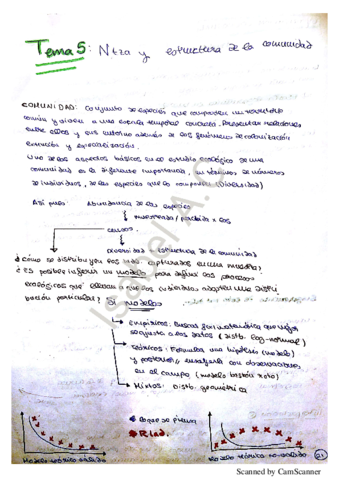 Tema 5: Ntza y estructura de la comunidad
COMUNIDAD: Conjunto de especies que comparten un
común y viven a una escala temporal concreta. Presentan relaciones
entre ellos y su entorno además de los fenómenos de colonización
extinción y especialización.
Uno de los aspectos básicos en el estudio ecológico de una
comunidad es la diferente importancia, en términos de números
de individuos, de las especies que la componen (diversidad)
Así pues: Abundancia de las especies
muestreada / por los
censos.
diversidad estructura de la comunidad
¿Cómo se distribuyen los inds capturados en una muestra?
¿Es posible inferir un modelo para definir los procesos
ecológicos que llevan a que los individuos adopten una distri
bución particular? Sí modelos
Empíricos: Buscan fun matemática que mejor
se ajusta a los datos (Distb. log-normal)
Teóricos: Formula una hipótesis (modelo)
y posterior, ensayarla con observaciones
en el campo (modelo bastón roto)
Mixtos: Distb. geométrica
Modelo teórico validado
Modelo teórico no validado
21
Scanned by CamScanner